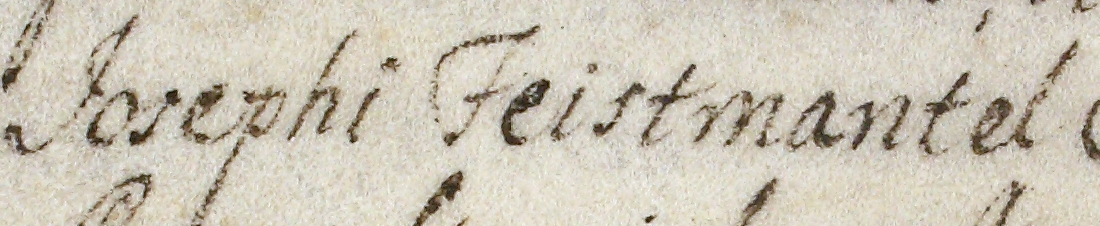 Josephi Feistmantel